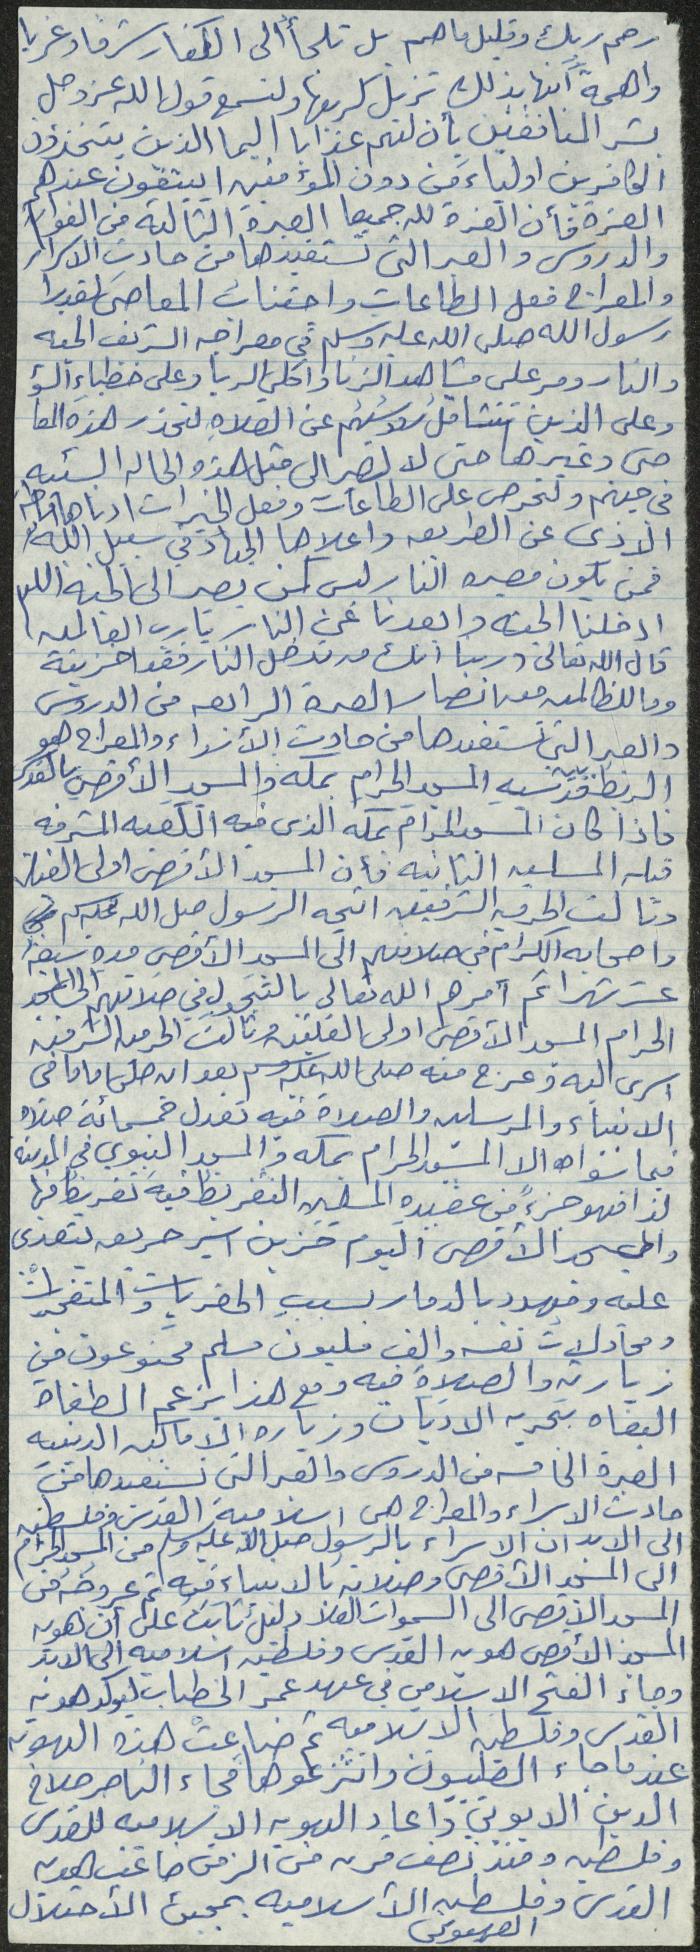 رحم ربك وقليل ما هم بل تلجأ الى الكفار شرقا وغربا
واهمة أنها بذلك تزيل كربها ولنسمع قول الله عز وجل
بشر المنافقين بأن لهم عذابا اليما الذين يتخذون
الكافرين اولياء من دون المؤمنين ايبتغون عندهم
العزة فأن العزة لله جميعا العبرة الثالثة من الفوائد
والدروس والعبر التي نستفيدها من حادث الاسراء
والمعراج فعل الطاعات واجتناب المعاصي لقد رأى
رسول الله صلى الله عليه وسلم في معراجه الشريف الجنه
والنار ومر على مشاهد الزنا واكلي الربا وعلى خطباء السؤ
وعلى الذين تتثاقل رؤوسهم عن الصلاة لنحذر هذه المعا
صي وغيرها حتى لا نصر الى مثل هذه الحاله السئيه
في جهنم ولنحرص على الطاعات وفعل الخيرات ادناها اماطة
الاذى عن الطريق واعلاها الجهاد في سبيل الله
فمن يكون مصيره النار ليس كمن يصير الى الجنة اللهم
ادخلنا الجنة وابعدنا عن النار يا رب العالمين
قال الله تعالى ربنا انك من تدخل النار فقد اخزيته
وما للظالمين من انصار العبرة الرابعه من الدروس
والعبر التي نستفيدها من حادث الأسراء والمعراج هو
الربط بين قدسية المسجد الحرام بمكه والمسجد الأقصى بالقدس
فاذا كان المسجد الحرام بمكه الذي فيه الكعبه المشرفه
قبله المسلمين الثانيه فأن المسجد الأقصى اولى القبلتين
وثالث الحرمين الشريفين اتجه الرسول صلى الله عليه وسلم
واصحابه الكرام في صلاتهم الى المسجد الأقصى مدة سبعة
عشر شهرا ثم أمرهم الله تعالى بالتحول في صلاتهم الى المسجد
الحرام المسجد الأقصى اولى القبلتين وثالث الحرمين الشريفين
اسرى اليه وعرج منه صلى الله عليه وسلم بعد ان صلى اماما في
الانبياء والمرسلين والصلاة فيه تعدل خمسمائة صلاه
فيما سواه الا المسجد الحرام بمكه والمسجد النبوي في المدينه
لذا فهو جزء من عقيدة المسلمين التفريط فيه تفريط فيها
والمسجد الأقصى اليوم حزين اسير جريح يتعدى
عليه ومهدد بالدمار بسبب الحفريات والمتفجرات
ومحاولات نفسه والف مليون مسلم ممنوعون من
زيارته والصلاة فيه ومع هذا يزعم الطغاة
البغاه بحريه الاديان وزياره الاماكن الدينيه
العبرة الخامسه من الدروس والعبر التي نستفيدها من
حادث الاسراء والمعراج هي اسلامية القدس وفلسطين
الى الابد ان الاسراء بالرسول صلى الله عليه وسلم من المسجد الحرام
الى المسجد الأقصى وصلاته بالانبياء فيه ثم عروجه من
المسجد الأقصى الى السموات العلا دليل ثابت على أن هويه
المسجد الأقصى هويه القدس وفلسطين اسلاميه الى الابد
وجاء الفتح الاسلامي في عهد عمر الخطاب ليؤكد هويه
القدس وفلسطين الاسلاميه ثم ضاعت هذه الهويه
عندما جاء الصليبيون وانتزعوها فجاء الناصر صلاح
الدين الايوبي واعاد الهويه الاسلاميه للقدس
وفلسطين ومنذ نصف قرن من الزمن ضاعت هويه
القدس وفلسطين الأسلاميه بمجيئ الأحتلال
الصهيوني